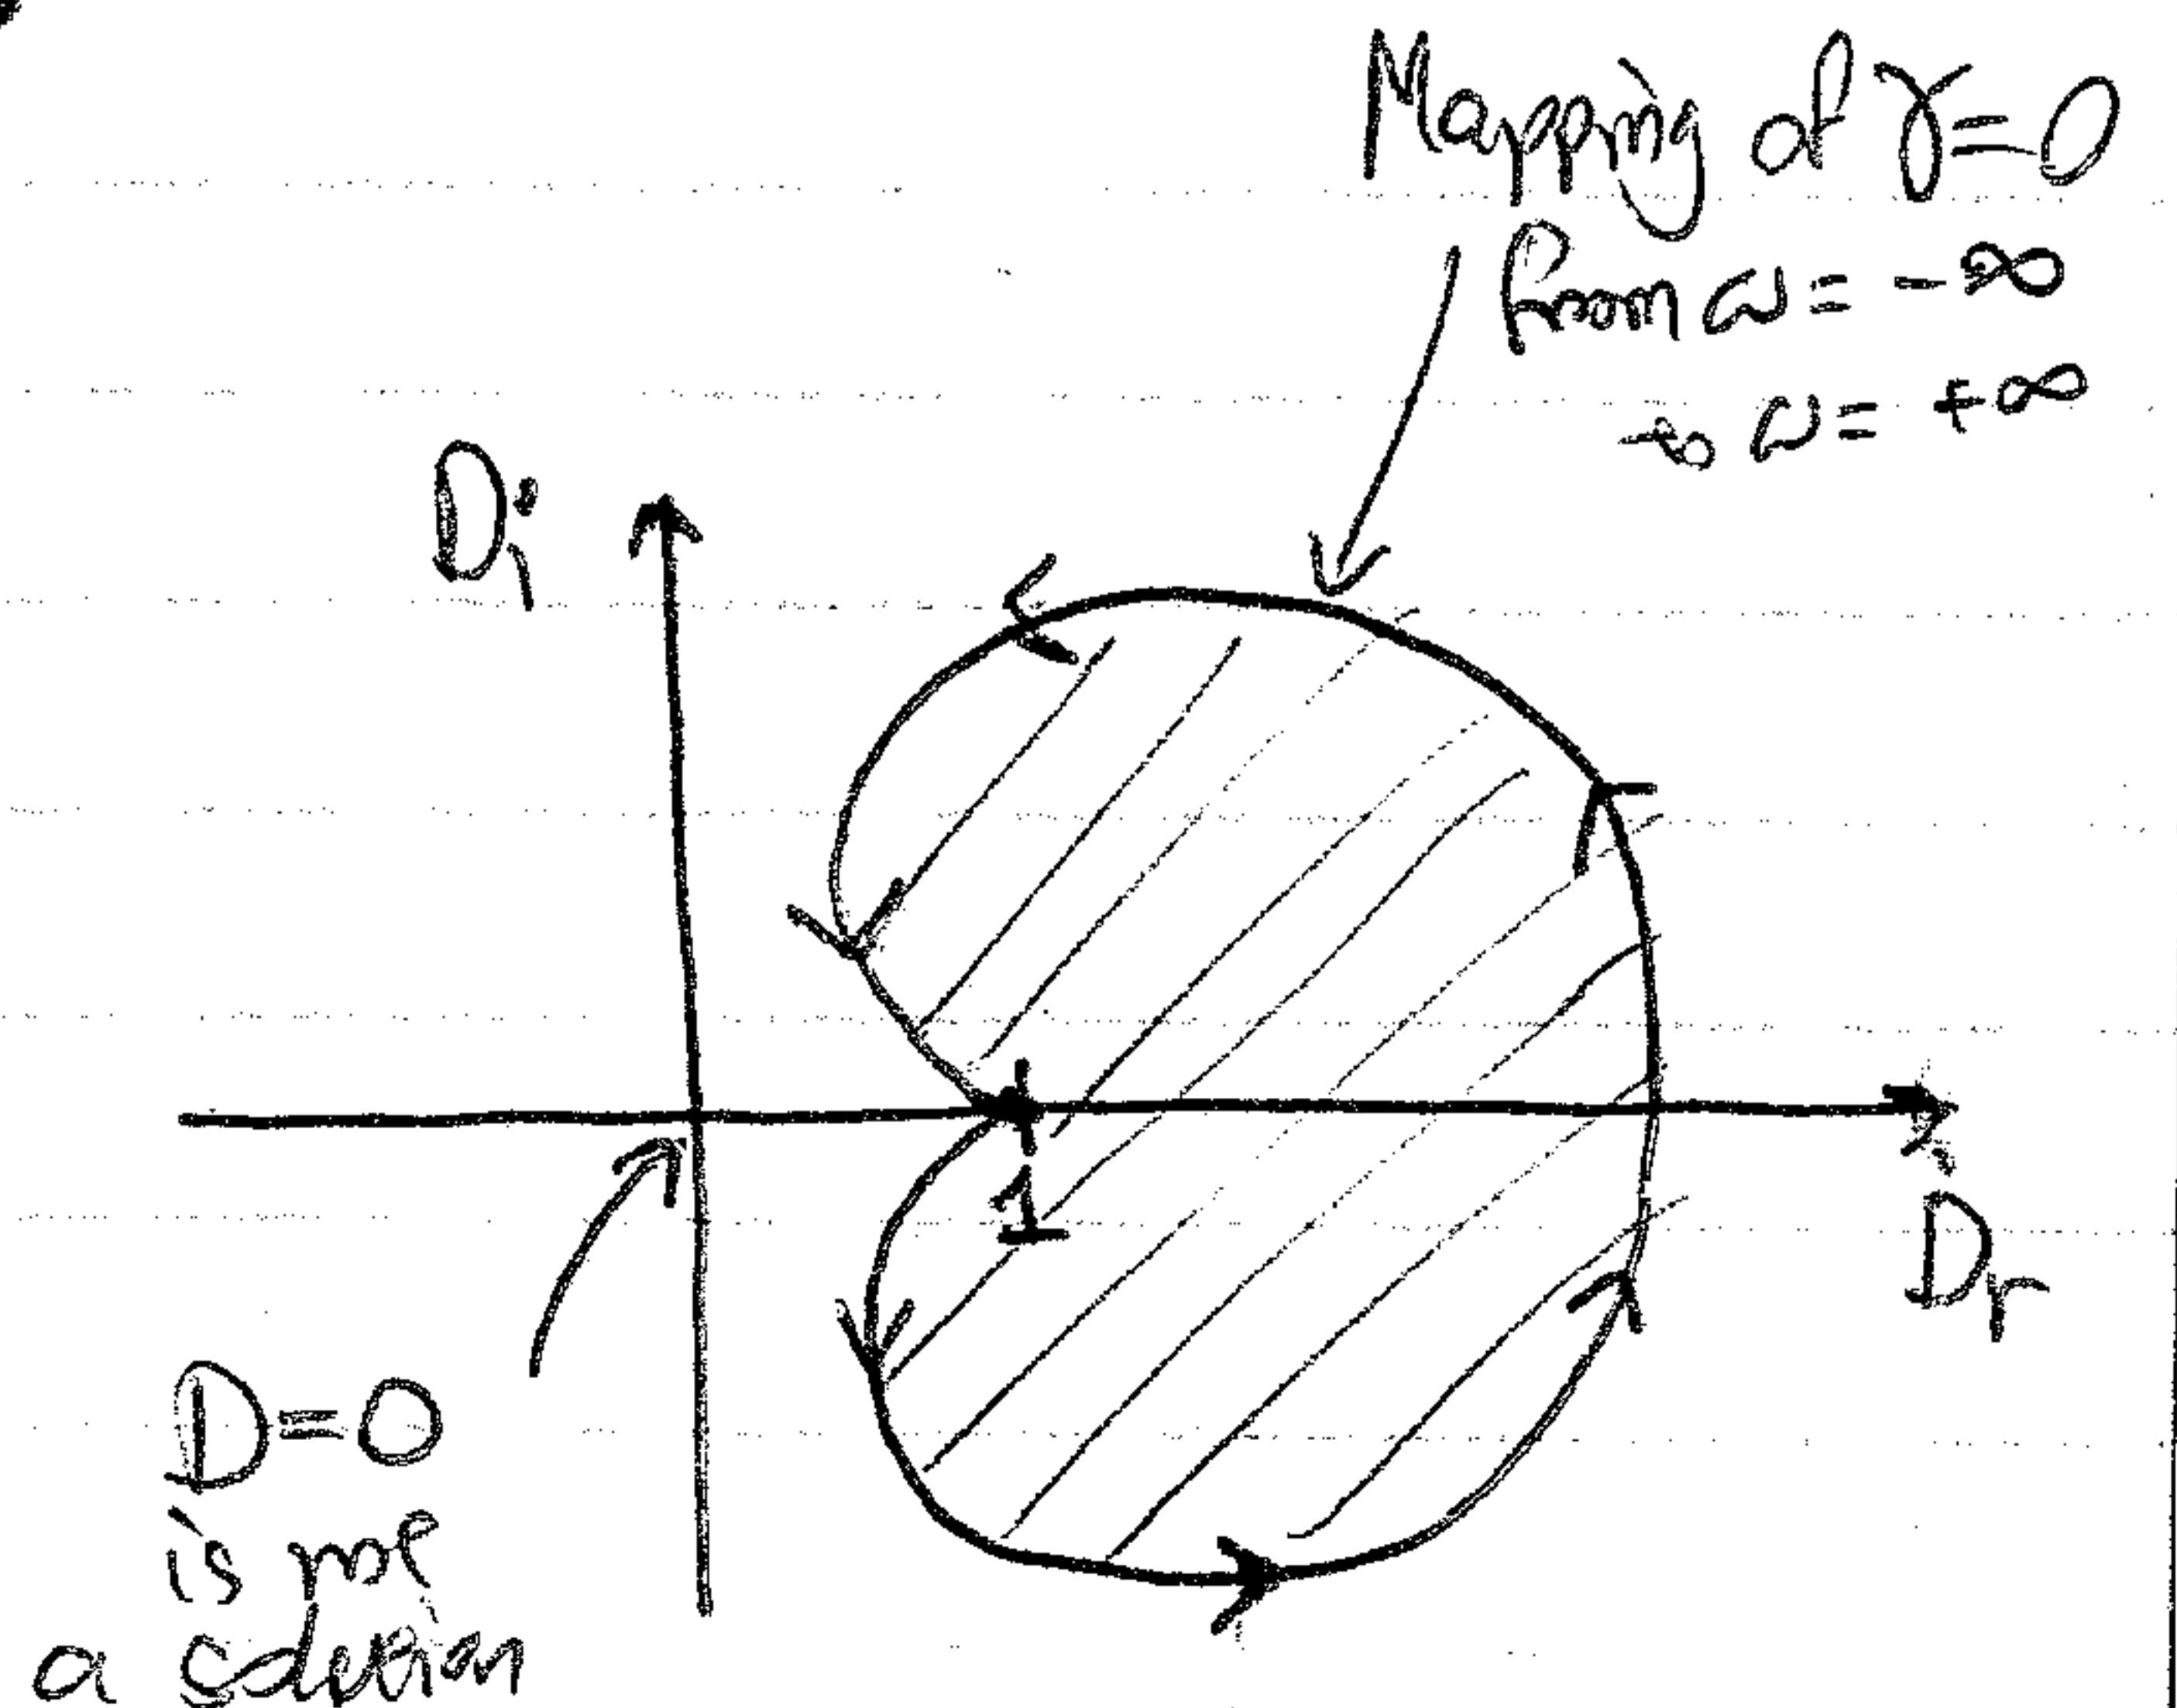 Mapping of γ=0
from ω = -∞
to ω = +∞
Di
1
Dr
D=0
is not
a solution